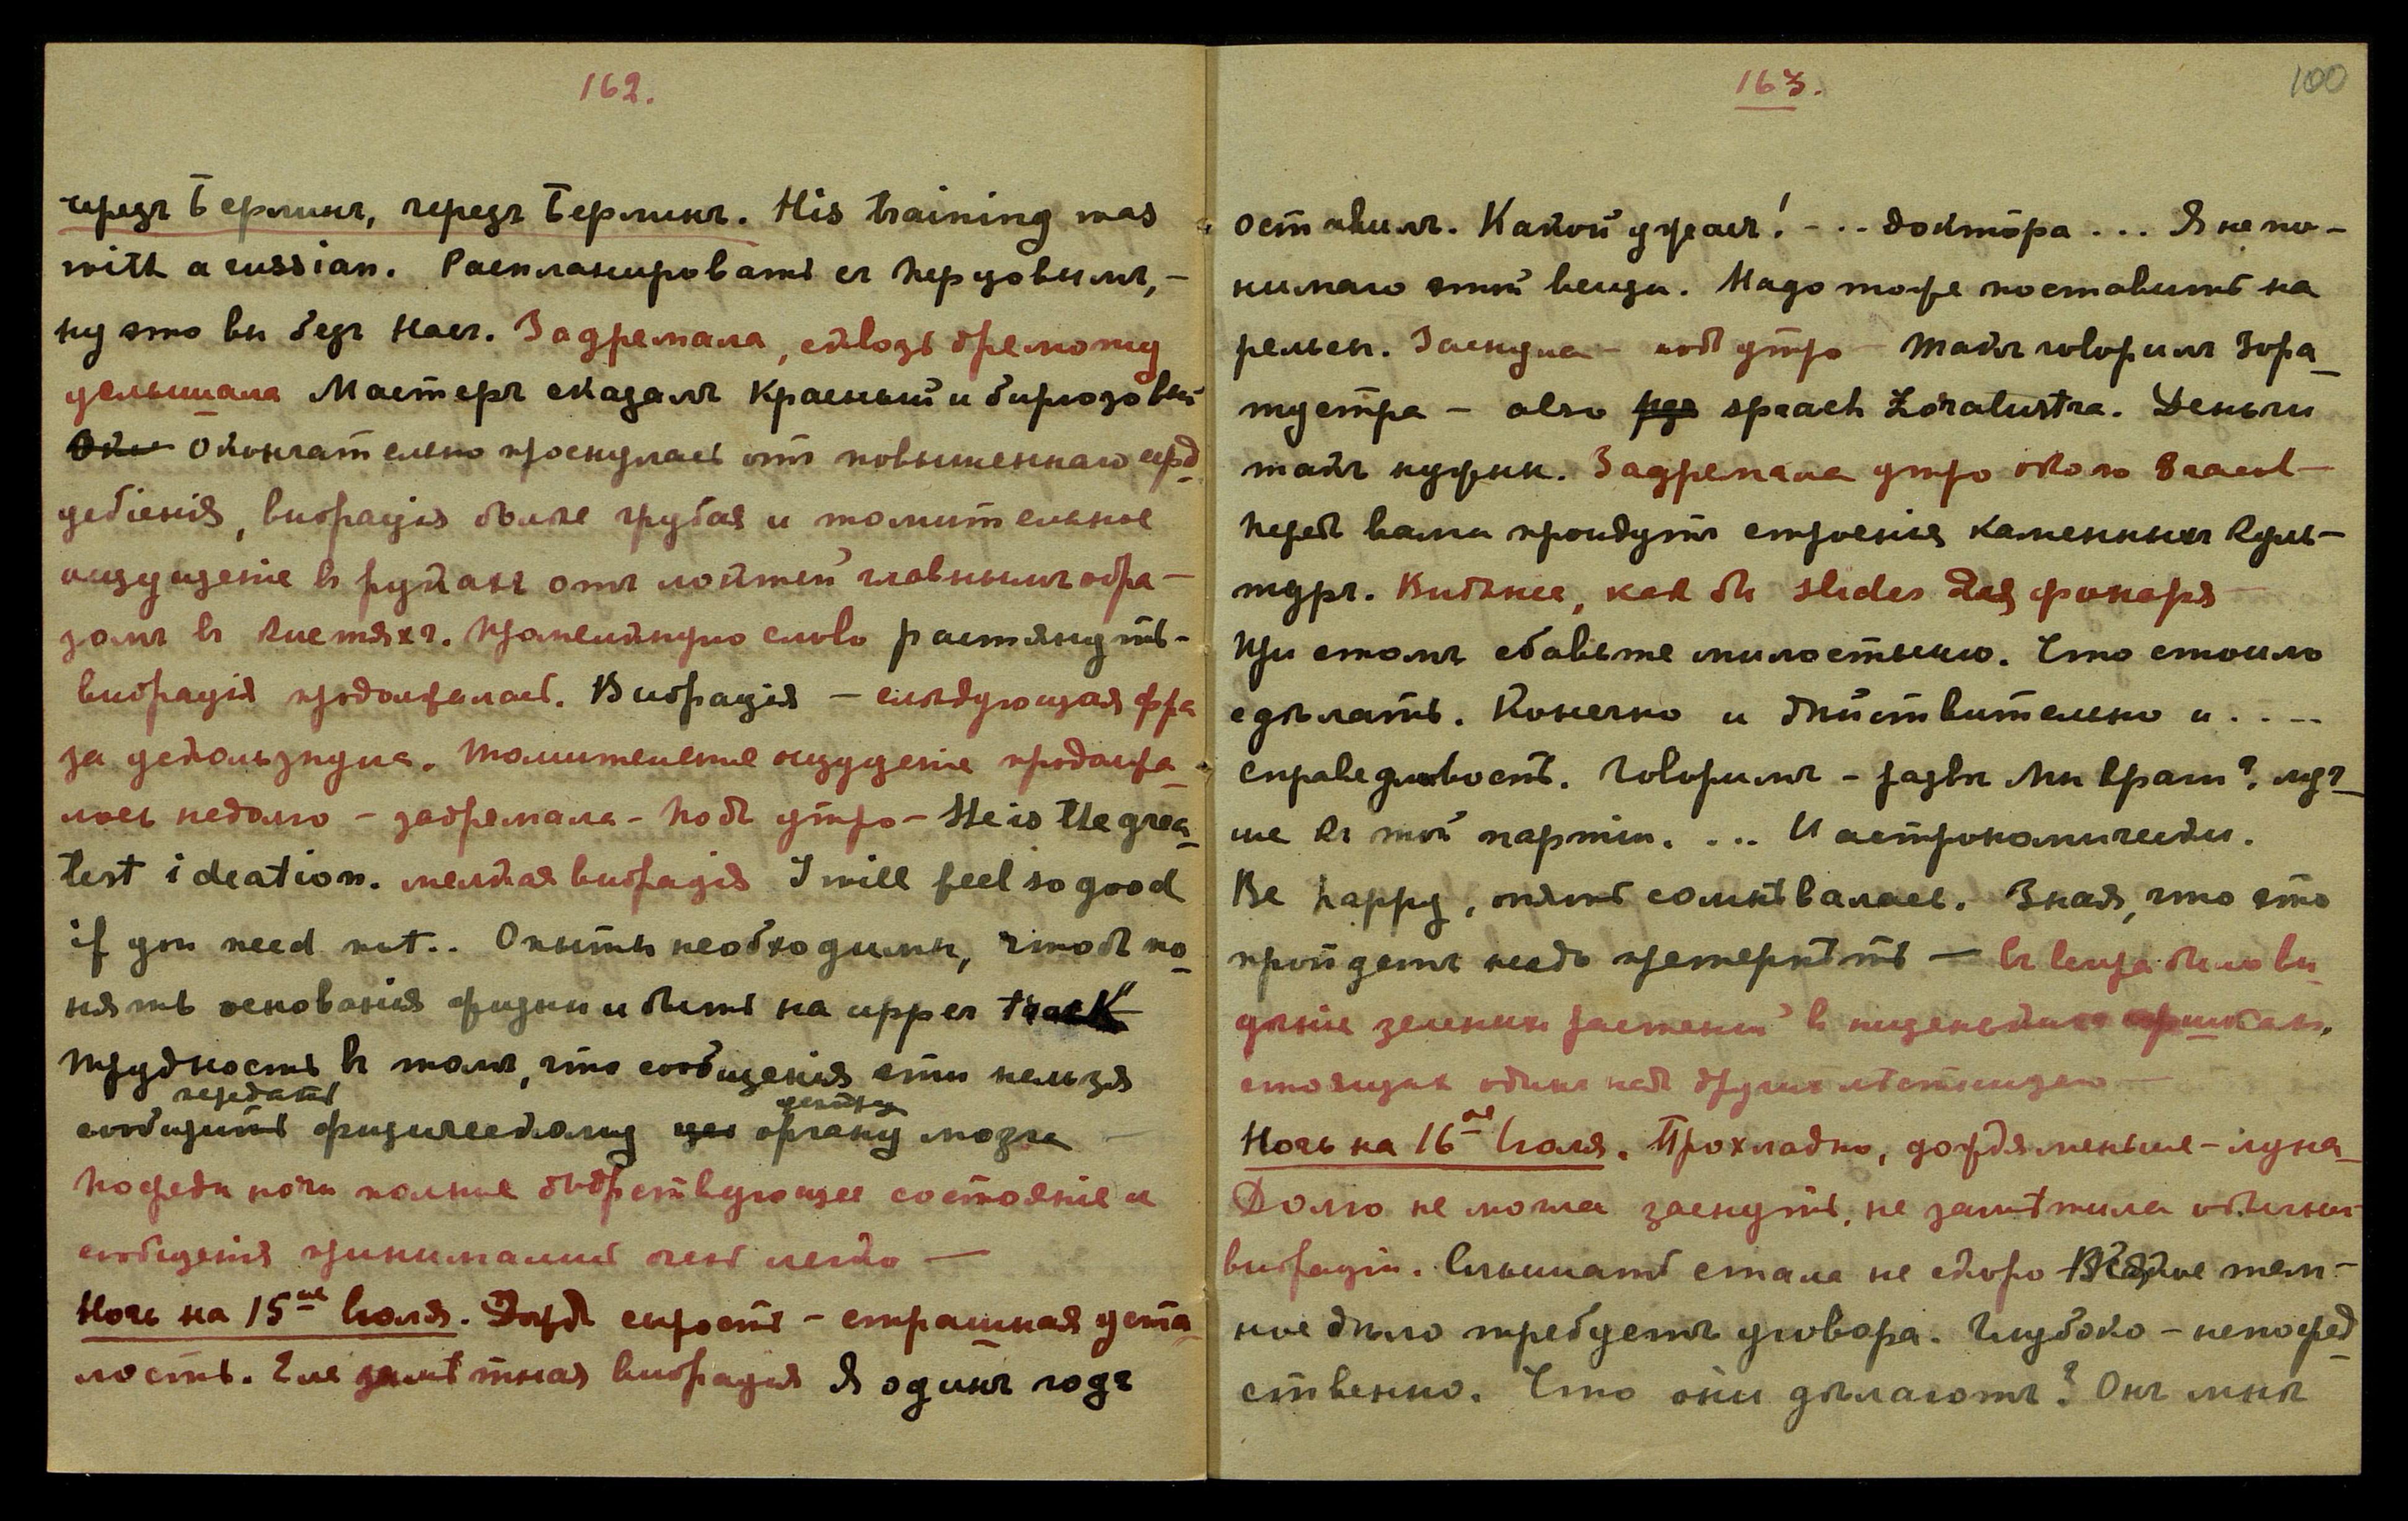 162.
черезъ Берлинъ, черезъ Берлинъ. His training was
with a russian. Распланировать съ Херзовымъ, –
ну это вы безъ насъ. Задремала, сквозь дремоту
услышала Мастеръ сказалъ красный и бирюзовый
окончательно проснулась отъ повышеннаго серд
цебіенія, вибрація более грубая и томительное
ощущеніе въ рукахъ отъ локтей главнымъ обра–
зомъ въ кистяхъ. Промелькнуло слово растянуть –
вибрація продолжалась. Вибрація – следующая фра
за ускользнула. Томительное ощущеніе продолжа
лось недолго – задремала – Подъ утро – He is the grea
test ideation. мелкая вибрація I will feel so good
if you need not.. Опыты необходимы, чтобъ по
нять основанія физики и быть на upper track"
Трудность въ томъ, что сообщенія эти нельзя
передать
сообщить физическому органу мозга –
Посреди ночи полное бодрствующее состояніе и
сообщенія принимались очень легко —
Ночь на 15ое Іюля. Дождь сырость – страшная уста
лость. Еле замѣтная вибрація Я одинъ годъ
163.
100
оставилъ. Какой ужасъ! - .. доктора ... Я не по–
нимаю этой вещи. Надо тоже поставить на
рельсы. Заснула – подъ утро – Такъ говорилъ Зора
тустра – also sprach Zoratustra. Деньги
такъ нужны. Задремала утро около 8 часовъ –
Передъ вами пройдутъ строенія каменныхъ куль–
туръ. Видѣніе, какъ бы slides для фонаря –
При столь сбавьте милостыню. Что стоило
сдѣлать. Конечно и дѣйствительно и . . --
справедливость. Говорилъ – развѣ мы враги? луч
ше къ той партіи. ... И астрономически.
Be happy, опять сомнѣвалась. Зная, что это
пройдетъ надо претерпѣть — въ концѣ было ви
дѣніе зеленыхъ растеній въ
стоящихъ одинъ надъ другимъ лѣстницею —
Ночь на 16ое Іюля. Прохладно, дождя меньше – луна
Долго не могла заснуть, не замѣтила обычной
вибраціи. Слышать стала не скоро Всякое тем–
ное дѣло требуетъ уговора. Глубоко – непосред
ственно. Что они дѣлаютъ? Онъ мнѣ